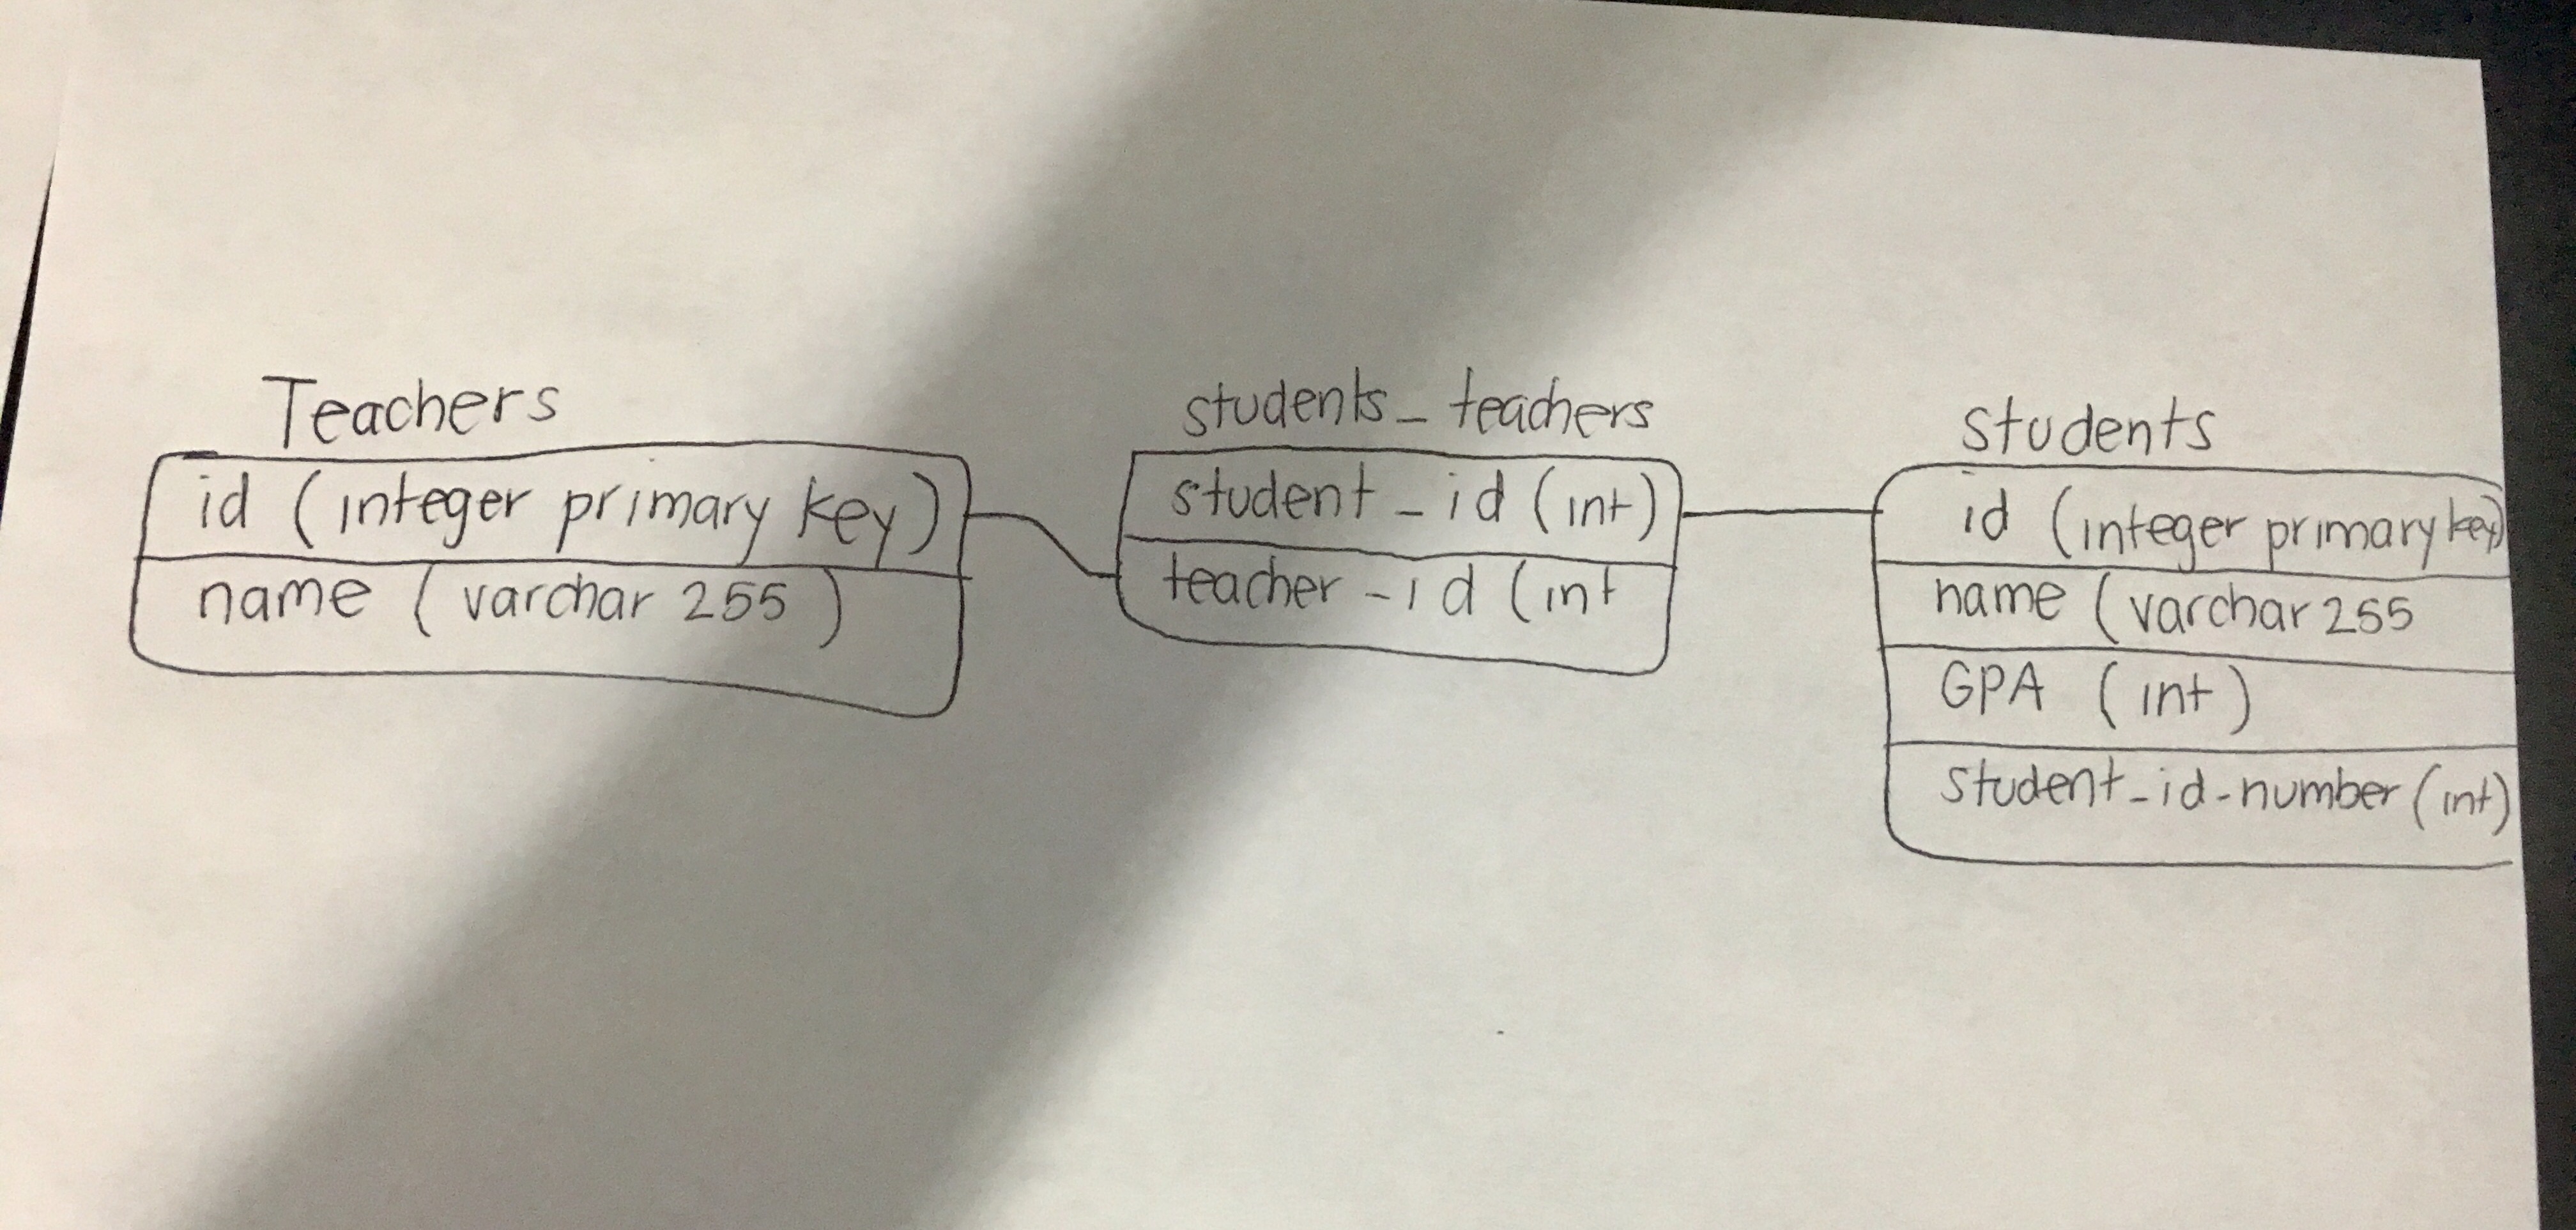 Teachers
id (integer primary key)
name (varchar 255)
students_teachers
student_id (int)
teacher_id (int
students
id (integer primary key)
name (varchar 255
GPA (int)
student_id_number (int)